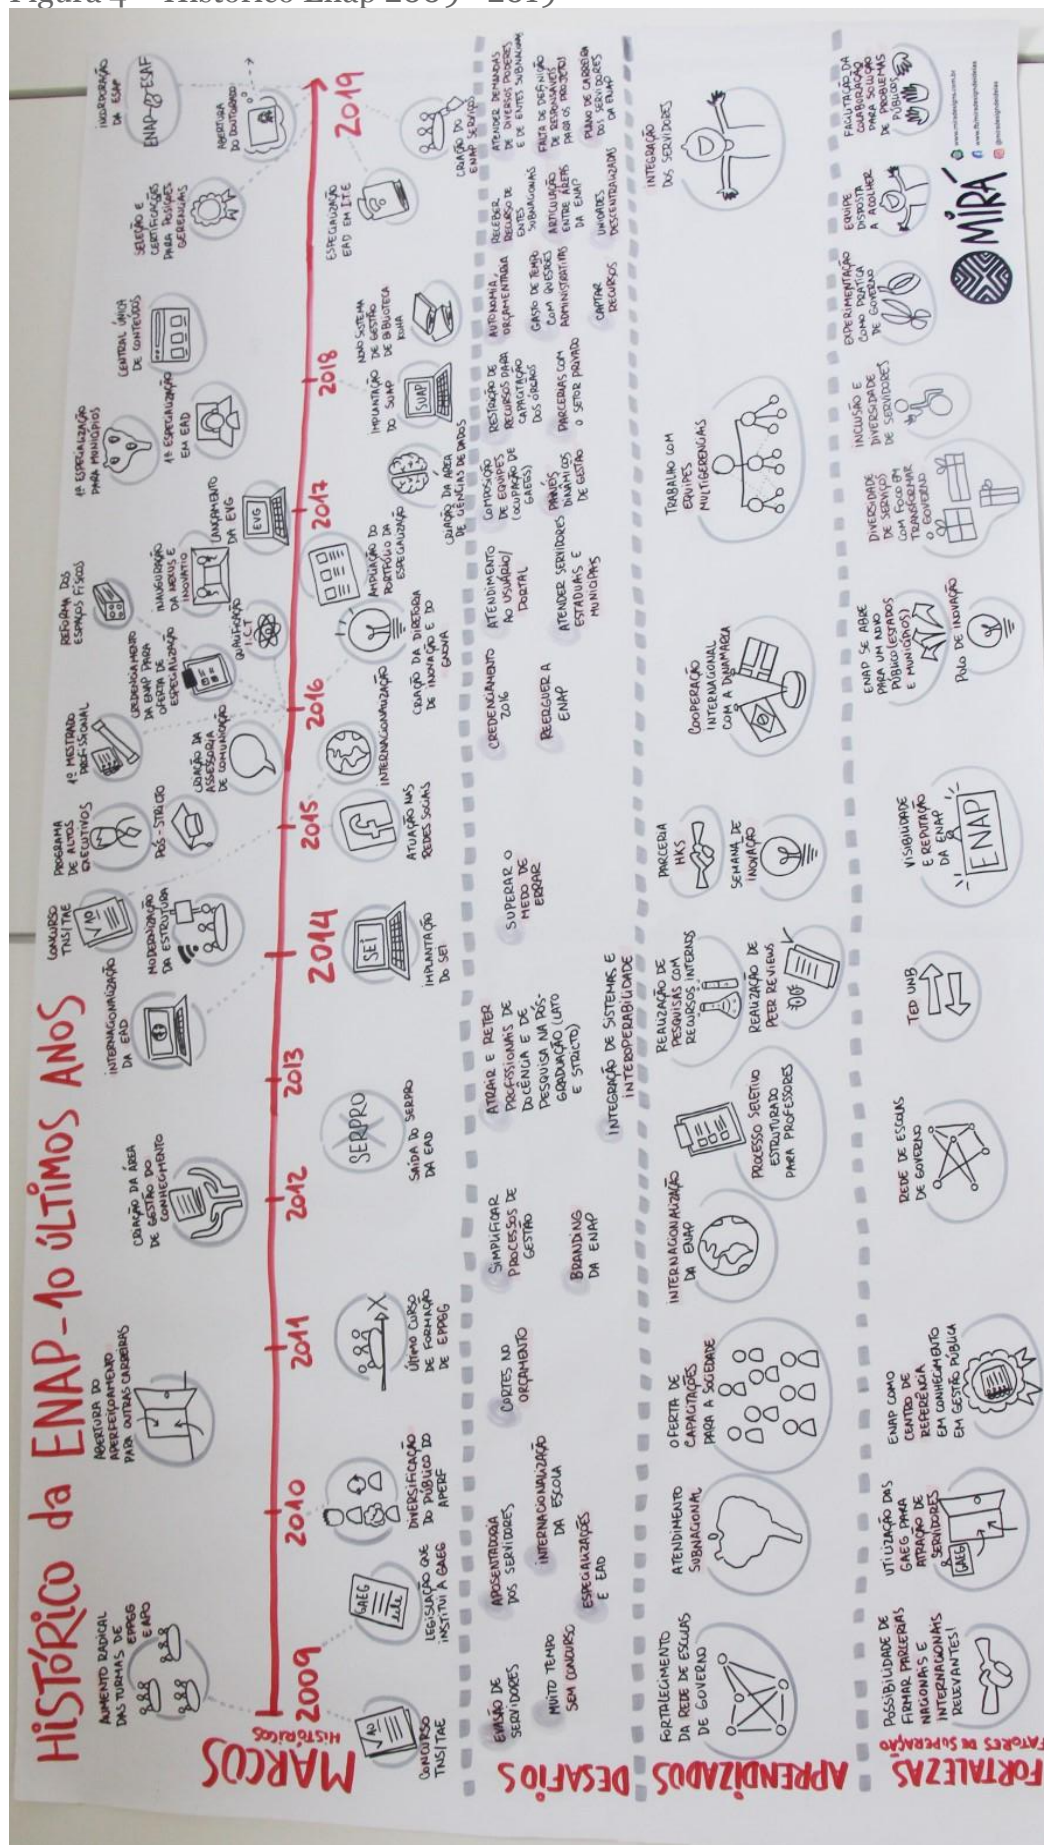 Figura 4 – Histórico Enap 2009 - 2019
HISTÓRICO da ENAP - 10 ÚLTIMOS ANOS
MARCOS
HISTÓRICOS
AUMENTO RADICAL
DAS TURMAS DE
EPPGG
E APO
ABERTURA DO
APERFEIÇOAMENTO
PARA OUTRAS CARREIRAS
CRIAÇÃO DA ÁREA
DE GESTÃO DO
CONHECIMENTO
INTERNACIONALIZAÇÃO
DA EAD
CONCURSO
TNS/TAE
V10
MODERNIZAÇÃO
DA ESTRUTURA
PROGRAMA
DE ALTOS
EXECUTIVOS
PÓS-STRICTO
1º MESTRADO
PROFISSIONAL
CRIAÇÃO DA
ASSESSORIA
DE COMUNICAÇÃO
CREDENCIAMENTO
DA ENAP PARA
OFERTA DE
ESPECIALIZAÇÃO
QUALIFICAÇÃO
I.C.T
REFORMA DOS
ESPAÇOS FÍSICOS
INAUGURAÇÃO
DA NEXUS E
INOVATIO
LANÇAMENTO
DA EVG
EVG
1ª ESPECIALIZAÇÃO
PARA MUNICÍPIOS
1ª ESPECIALIZAÇÃO
EM EAD
CENTRAL ÚNICA
DE CONTEÚDOS
SELEÇÃO E
CERTIFICAÇÕES
PARA POSIÇÕES
GERENCIAIS
INCORPORAÇÃO
DA ESAF
ENAP ESAF
ABERTURA
DO DOUTORADO
2009
2010
2011
2012
2013
2014
2015
2016
2017
2018
2019
CONCURSO
TNS/TAE
V10
GAEG
LEGISLAÇÃO QUE
INSTITUI A GAEG
DIVERSIFICAÇÃO
DO PÚBLICO DO
APERF
ÚLTIMO CURSO
DE FORMAÇÃO
DE EPPGG
SERPRO
SAÍDA DO SERPRO
DA EAD
SEI
IMPLANTAÇÃO
DO SEI
ATUAÇÃO NAS
REDES SOCIAIS
INTERNACIONALIZAÇÃO
CRIAÇÃO DA DIRETORIA
DE INOVAÇÃO E DO
GNOVA
AMPLIAÇÃO DO
PORTFÓLIO DA
ESPECIALIZAÇÃO
CRIAÇÃO DA ÁREA
DE CIÊNCIAS DE DADOS
IMPLANTAÇÃO
DO SUAP
SUAP
NOVO SISTEMA
DE GESTÃO
DE BIBLIOTECA
KOHA
ESPECIALIZAÇÃO
EAD EM ITE
CRIAÇÃO DO
ENAP SERVIÇOS
DESAFIOS
EVASÃO DE
SERVIDORES
MUITO TEMPO
SEM CONCURSO
APOSENTADORIA
DOS SERVIDORES
INTERNACIONALIZAÇÃO
DA ESCOLA
ESPECIALIZAÇÕES
E EAD
CORTES NO
ORÇAMENTO
SIMPLIFICAR
PROCESSOS DE
GESTÃO
BRANDING
DA ENAP
ATRAIR E RETER
PROFISSIONAIS DE
DOCÊNCIA E DE
PESQUISA NA PÓS-
GRADUAÇÃO (LATO
E STRICTO)
INTEGRAÇÃO DE SISTEMAS E
INTEROPERABILIDADE
SUPERAR O
MEDO DE
ERRAR
CREDENCIAMENTO
2016
REERGUER A
ENAP
ATENDIMENTO
AO USUÁRIO/
PORTAL
ATENDER SERVIDORES
ESTADUAIS E
MUNICIPAIS
COMPOSIÇÃO
DE EQUIPES
(OCUPAÇÃO DE
GAEGS)
PAINÉIS
DINÂMICOS
DE GESTÃO
RESTRIÇÃO DE
RECURSOS PARA
CAPACITAÇÃO
DOS ÓRGÃOS
PARCERIAS COM
O SETOR PRIVADO
AUTONOMIA
ORÇAMENTÁRIA
GASTO DE TEMPO
COM QUESTÕES
ADMINISTRATIVAS
CAPTAR
RECURSOS
RECEBER
RECURSO DE
ENTES
SUBNACIONAIS
ARTICULAÇÃO
ENTRE ÁREAS
DA ENAP
UNIDADES
DESCENTRALIZADAS
ATENDER DEMANDAS
DE DIVERSOS PODERES
E DE ENTES SUBNACIONAIS
FALTA DE DEFINIÇÃO
DE RESPONSÁVEIS
PARA OS PROJETOS
PLANO DE CARREIRA
DOS SERVIDORES
DA ENAP
APRENDIZADOS
FORTALECIMENTO
DA REDE DE ESCOLAS
DE GOVERNO
ATENDIMENTO
SUBNACIONAL
OFERTA DE
CAPACITAÇÕES
PARA A SOCIEDADE
INTERNACIONALIZAÇÃO
DA ENAP
PROCESSO SELETIVO
ESTRUTURADO
PARA PROFESSORES
REALIZAÇÃO DE
PESQUISAS COM
RECURSOS INTERNOS
REALIZAÇÃO DE
PEER REVIEWS
PARCERIA
HKS
SEMANA DE
INOVAÇÃO
COOPERAÇÃO
INTERNACIONAL
COM A DINAMARCA
TRABALHO COM
EQUIPES
MULTIGERENCIAIS
INTEGRAÇÃO
DOS SERVIDORES
FORTALEZAS
FATORES DE SUPERAÇÃO
POSSIBILIDADE DE
FIRMAR PARCERIAS
NACIONAIS E
INTERNACIONAIS
RELEVANTES!
UTILIZAÇÃO DAS
GAEG PARA
ATRAÇÃO DE
SERVIDORES
GAEG
ENAP COMO
CENTRO DE
REFERÊNCIA
EM CONHECIMENTO
EM GESTÃO PÚBLICA
REDE DE ESCOLAS
DE GOVERNO
TED UNB
VISIBILIDADE
E REPUTAÇÃO
DA ENAP
ENAP
ENAP SE ABRE
PARA UM NOVO
PÚBLICO (ESTADOS
E MUNICÍPIOS)
POLO DE INOVAÇÃO
DIVERSIDADE
DE SERVIÇOS
COM FOCO EM
TRANSFORMAR
O GOVERNO
INCLUSÃO E
DIVERSIDADE
DE SERVIDORES
EXPERIMENTAÇÃO
COMO PRÁTICA
DE GOVERNO
EQUIPE
DISPOSTA
A ACOLHER
FACILITAÇÃO DA
COLABORAÇÃO
PARA SOLUÇÃO
DE PROBLEMAS
PÚBLICOS
MIRÁ